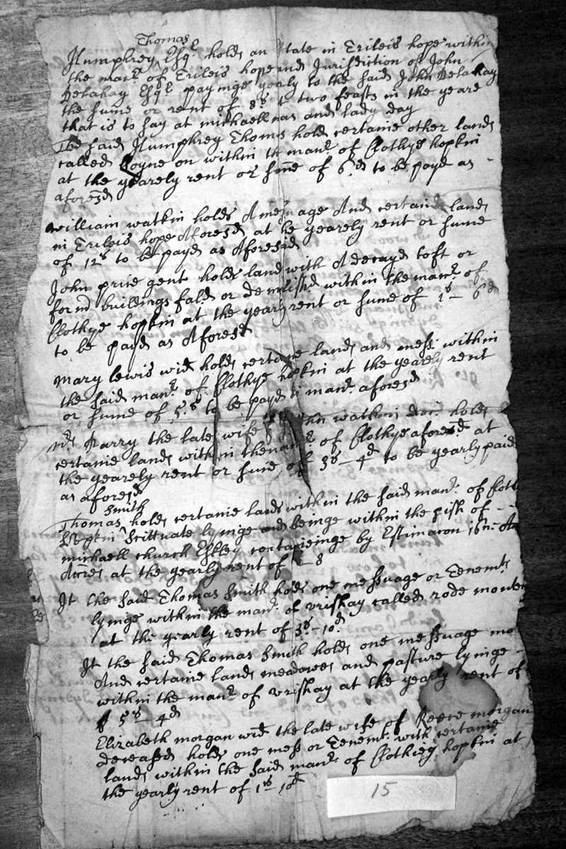 Thomas
Humphrey Esqr holds an state in Trileis hope within
the manr of Trileis hope and Jurisdiction of John
Delahay Esqr payinge yearly to the said John Delahay
the sume or rent of 8s at two feasts in the yeare
that is to say at michaellmas and lady day
The said Humphrey Thomas holds certaine other lands
called on within the manr of Clothye hopkin
at the yearely rent or sume of 6d to be payd as
aforesd
William watkin holds A messuage And certaine lands
in Trileis hope Aforesd at the yearely rent or sume
of 12s to be payd as Aforesd
John price gent holds land with A decayd toft or
buildings falds or demised within the manr of
Clothye hopkin at the yearly rent or sume of 1s - 6d
to be payd as Aforesd
Mary lewis wid holds certaine lands and mess within
the said manr of Clothye hopkin at the yearely rent
or sume of 5s to be payd manr aforesd
Marry the late wife watkin holds
certanie lands within the manr of Clothye aforesd at
the yearely rent or sume of 3s - 4d to be yearly paid
as aforesd
Smith
Thomas holds certanie lands within the said manr of
Hopkin Scittuate lyinge and beinge within the pish of
michaell church Eskley contayneinge by Estimacon
Acres at the yearly rent of 8
It the said Thomas Smith holds one messuage or Tenemt
lyinge within the manr of vriskay called rode
at the yearly rent of 3s - 10d
It the said Thomas Smith holds one messuage
And certaine lands meadowes and pasture lyinge
within the manr of vriskay at the yearly rent of
5s - 4d
Elizabeth morgan wid the late wife of Reece morgan
deceased holds one mess or Tenemt with certaine
lands within the said manr of Clothiey hopkin at
the yearly rent of 1s 10d
15